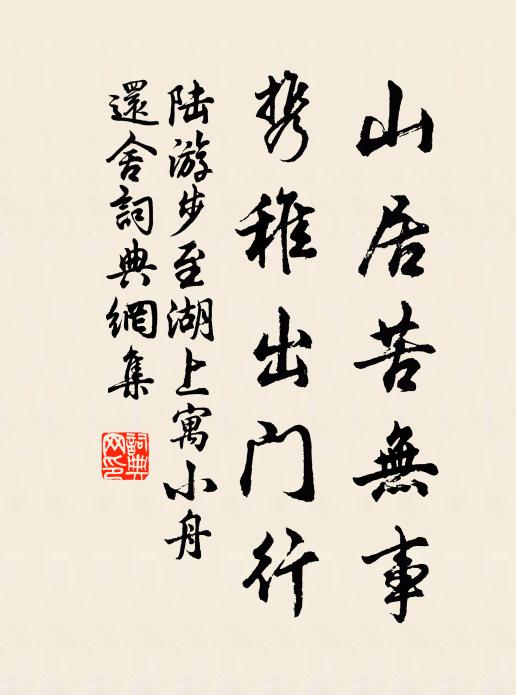 山居苦無事
携稚出門行
陆游步至湖上寓小舟
還舍詞典網集
詞典网印